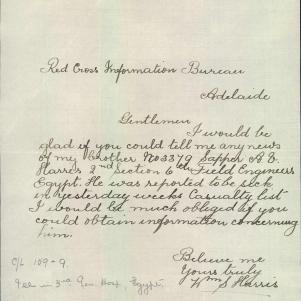 Red Cross Information Bureau
Adelaide
Gentlemen
I would be
glad if you could tell me any news
of my brother No 3379 Sapper A. E.
Harris 2nd Section 6th Field Engineers
Egypt. He was reported to be sick
in yesterday weeks Casualty list
I would be much obliged if you
could obtain information concerning
him.
Believe me
Yours truly
Wm S Harris
C/L 109-9.
in 3rd Gen. Hosp, Egypt.